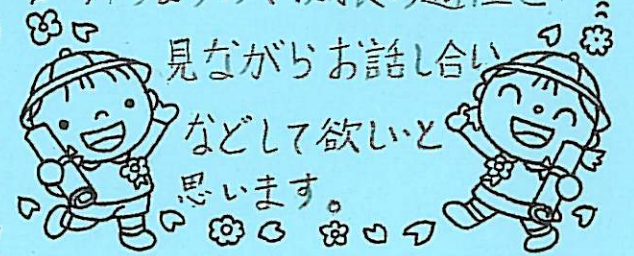 見ながらお話し合い
などして欲しいと
思います。